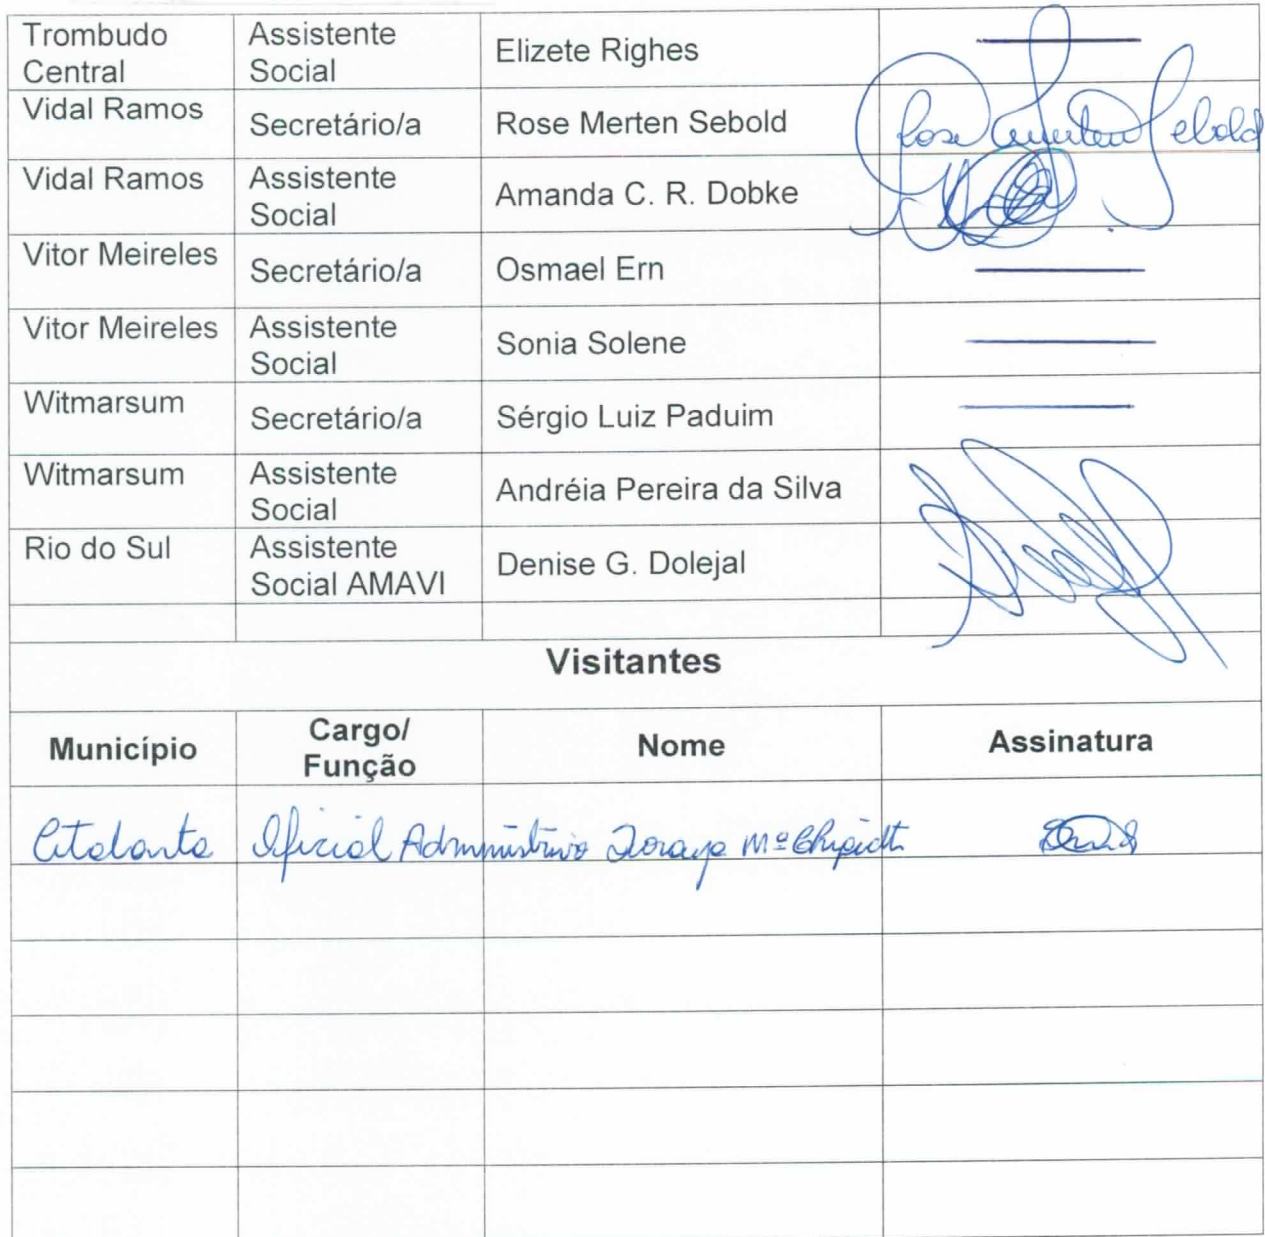 Trombudo Central Assistente Social Elizete Righes
Vidal Ramos Secretário/a Rose Merten Sebold Rose Merten Sebold
Vidal Ramos Assistente Social Amanda C. R. Dobke
Vitor Meireles Secretário/a Osmael Ern
Vitor Meireles Assistente Social Sonia Solene
Witmarsum Secretário/a Sérgio Luiz Paduim
Witmarsum Assistente Social Andréia Pereira da Silva
Rio do Sul Assistente Social AMAVI Denise G. Dolejal
Visitantes
Município Cargo/ Função Nome Assinatura
Oficial Mª